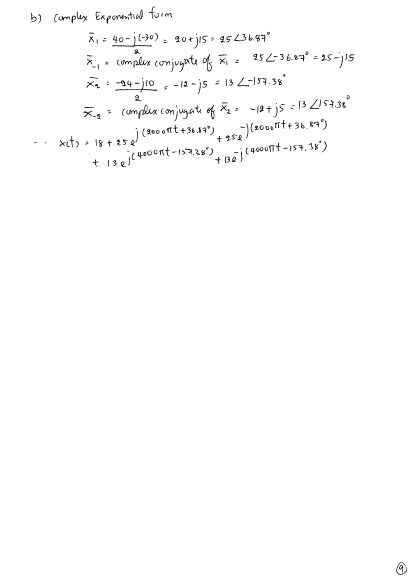 b) Complex Exponential form
X̄₁ = 40 - j(-30) / 2 = 20 + j15 = 25∠36.87°
X̄₋₁ = complex conjugate of X̄₁ = 25∠-36.87° = 25 - j15
X̄₂ = -24 - j10 / 2 = -12 - j5 = 13∠-157.38°
X̄₋₂ = complex conjugate of X̄₂ = -12 + j5 = 13∠157.38°
∴ x(t) = 18 + 25e^j(2000πt + 36.87°) + 25e^-j(2000πt + 36.87°)
+ 13e^j(4000πt - 157.38°) + 13e^-j(4000πt - 157.38°)
9